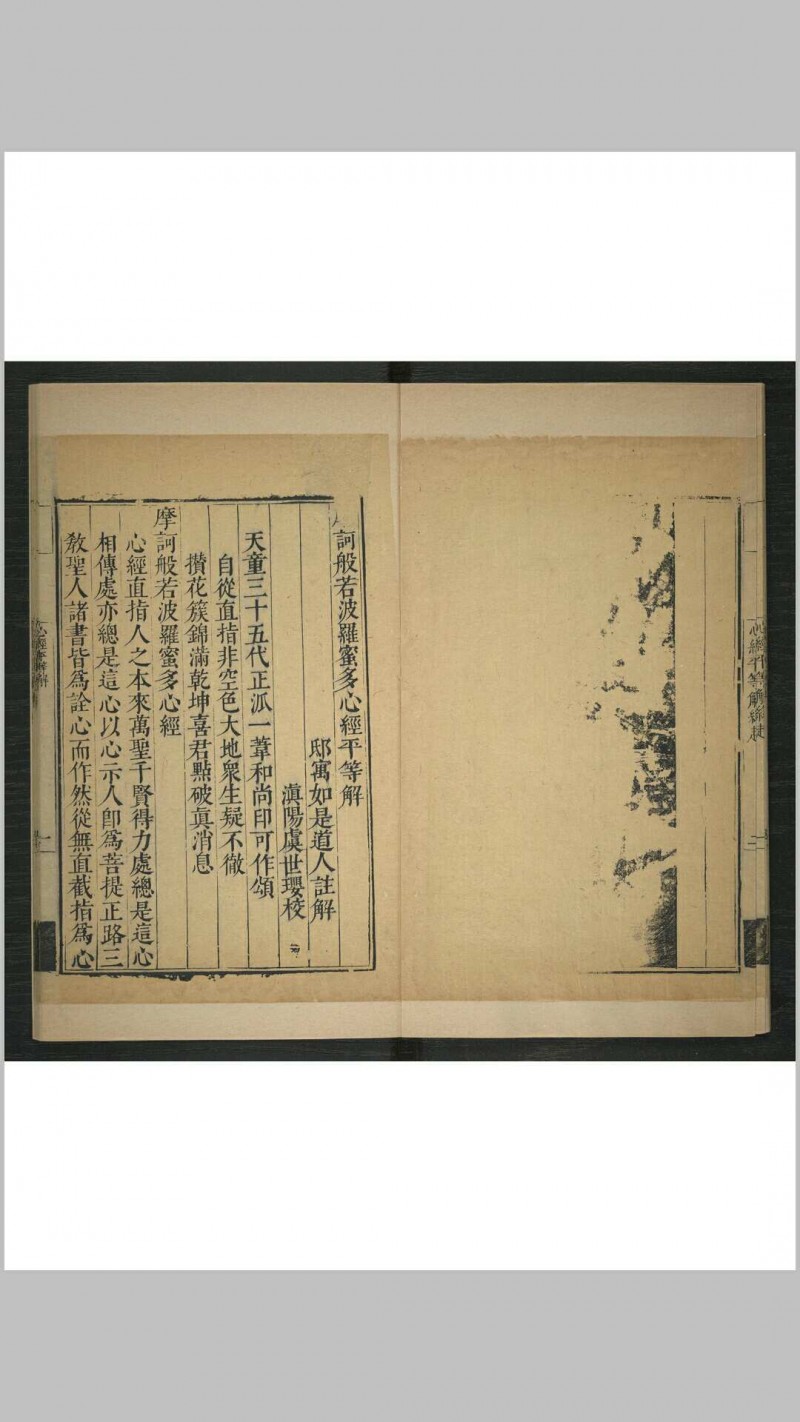 訶般若波羅蜜多心經平等解
邸寓如是道人註解
滇陽虞世瓔校
天童三十五代正派一葦和尚印可作頌
自從直指非空色大地衆生疑不徹
攢花簇錦滿乾坤喜君點破眞消息
摩訶般若波羅蜜多心經
心經直指人之本來萬聖千賢得力處總是這心
相傳處亦總是這心以心示人卽爲菩提正路三
敎聖人諸書皆爲詮心而作然從無直截指爲心